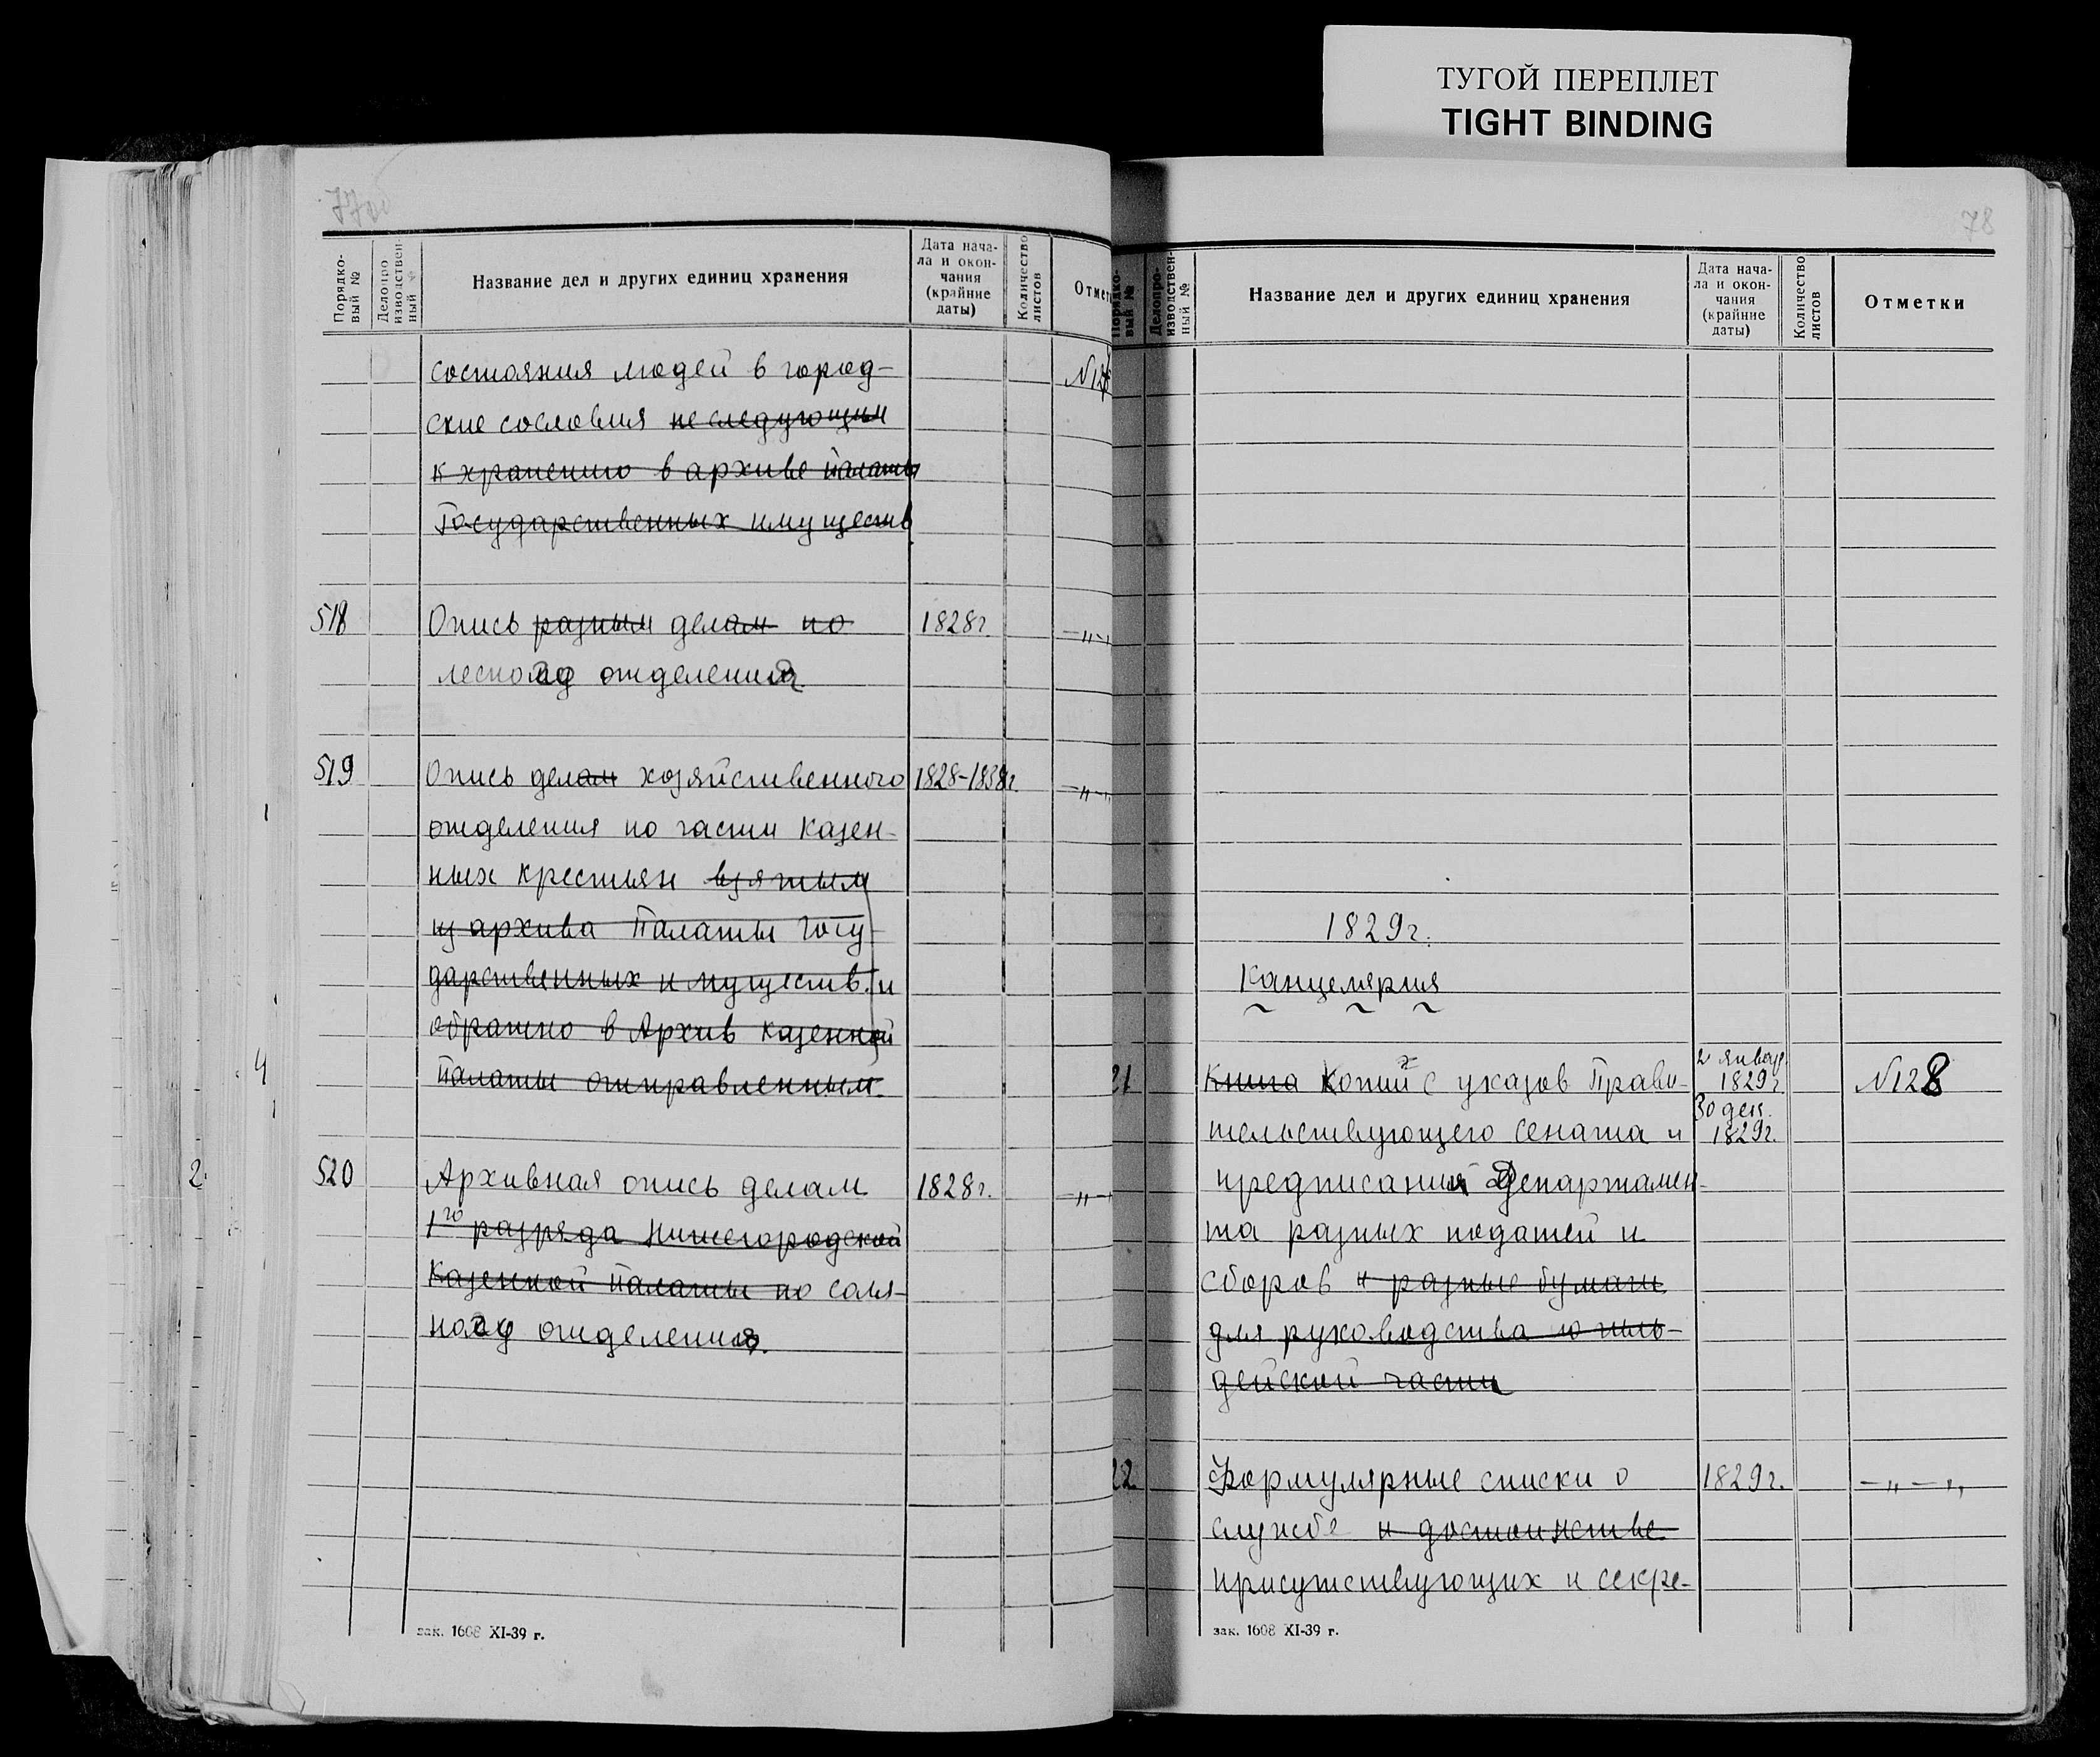 ТУГОЙ ПЕРЕПЛЕТ
TIGHT BINDING
77об
Порядко-
вый №
Делопро
изводствен-
ный №
Название дел и других единиц хранения
Дата нача-
ла и окон-
чания
(крайние
даты)
Количество
листов
Отмет
состояния людей в город-
ские сословия не следующим
к хранению в архиве Палаты
Государственных имуществ
518 Опись разным делам по 1828г. -„-
лесного отделения
519 Опись делам хозяйственного 1828-1838г. -„-
отделения по части казен-
ных крестьян взятым
из архива Палаты Госу-
дарственных имуществ и
обратно в Архив казенной
Палаты отправленным.
520 Архивная опись делам 1828г. -„-
1го разряда Нижегородской
Казенной Палаты по соля-
ному отделения.
зак. 1608 XI-39 г.
78
Порядко-
вый №
Делопро-
изводствен-
ный №
Название дел и других единиц хранения
Дата нача-
ла и окон-
чания
(крайние
даты)
Количество
листов
Отметки
1829г.
Канцелярия
21 Книга Копий с указов Прави- 2 январ. 1829г. №128
тельствующего Сената и 30 дек. 1829г.
предписания Департамен-
та разных податей и
сборов и разные бумаги
для руководства
дейской части
22 Формулярные списки о 1829г. -„-„
службе и достоинстве
присутствующих и секре-
зак. 1608 XI-39 г.